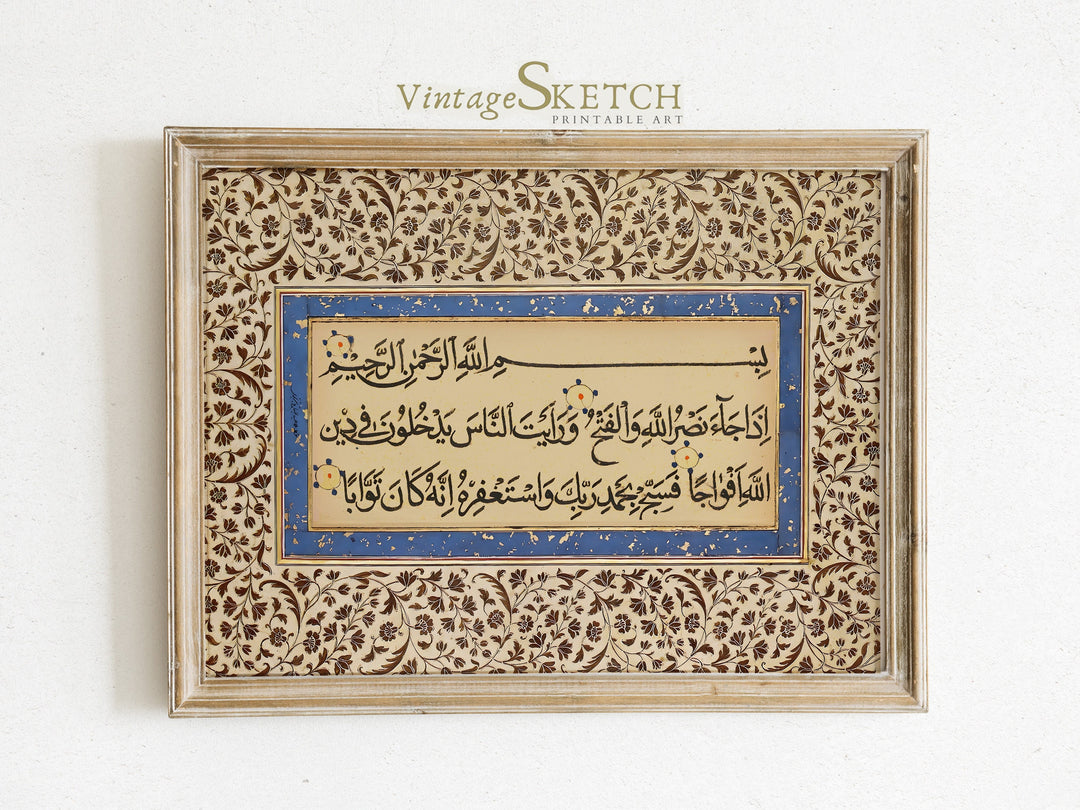 VintageSKETCH
PRINTABLE ART
بِسْمِ اللَّهِ الرَّحْمٰنِ الرَّحِيمِ
اِذَا جَآءَ نَصْرُ اللَّهِ وَالْفَتْحُ وَرَأَيْتَ النَّاسَ يَدْخُلُونَ فِي دِيْنِ
اللَّهِ اَفْوَاجًا فَسَبِّحْ بِحَمْدِ رَبِّكَ وَاسْتَغْفِرْهُ اِنَّهُ كَانَ تَوَّابًا